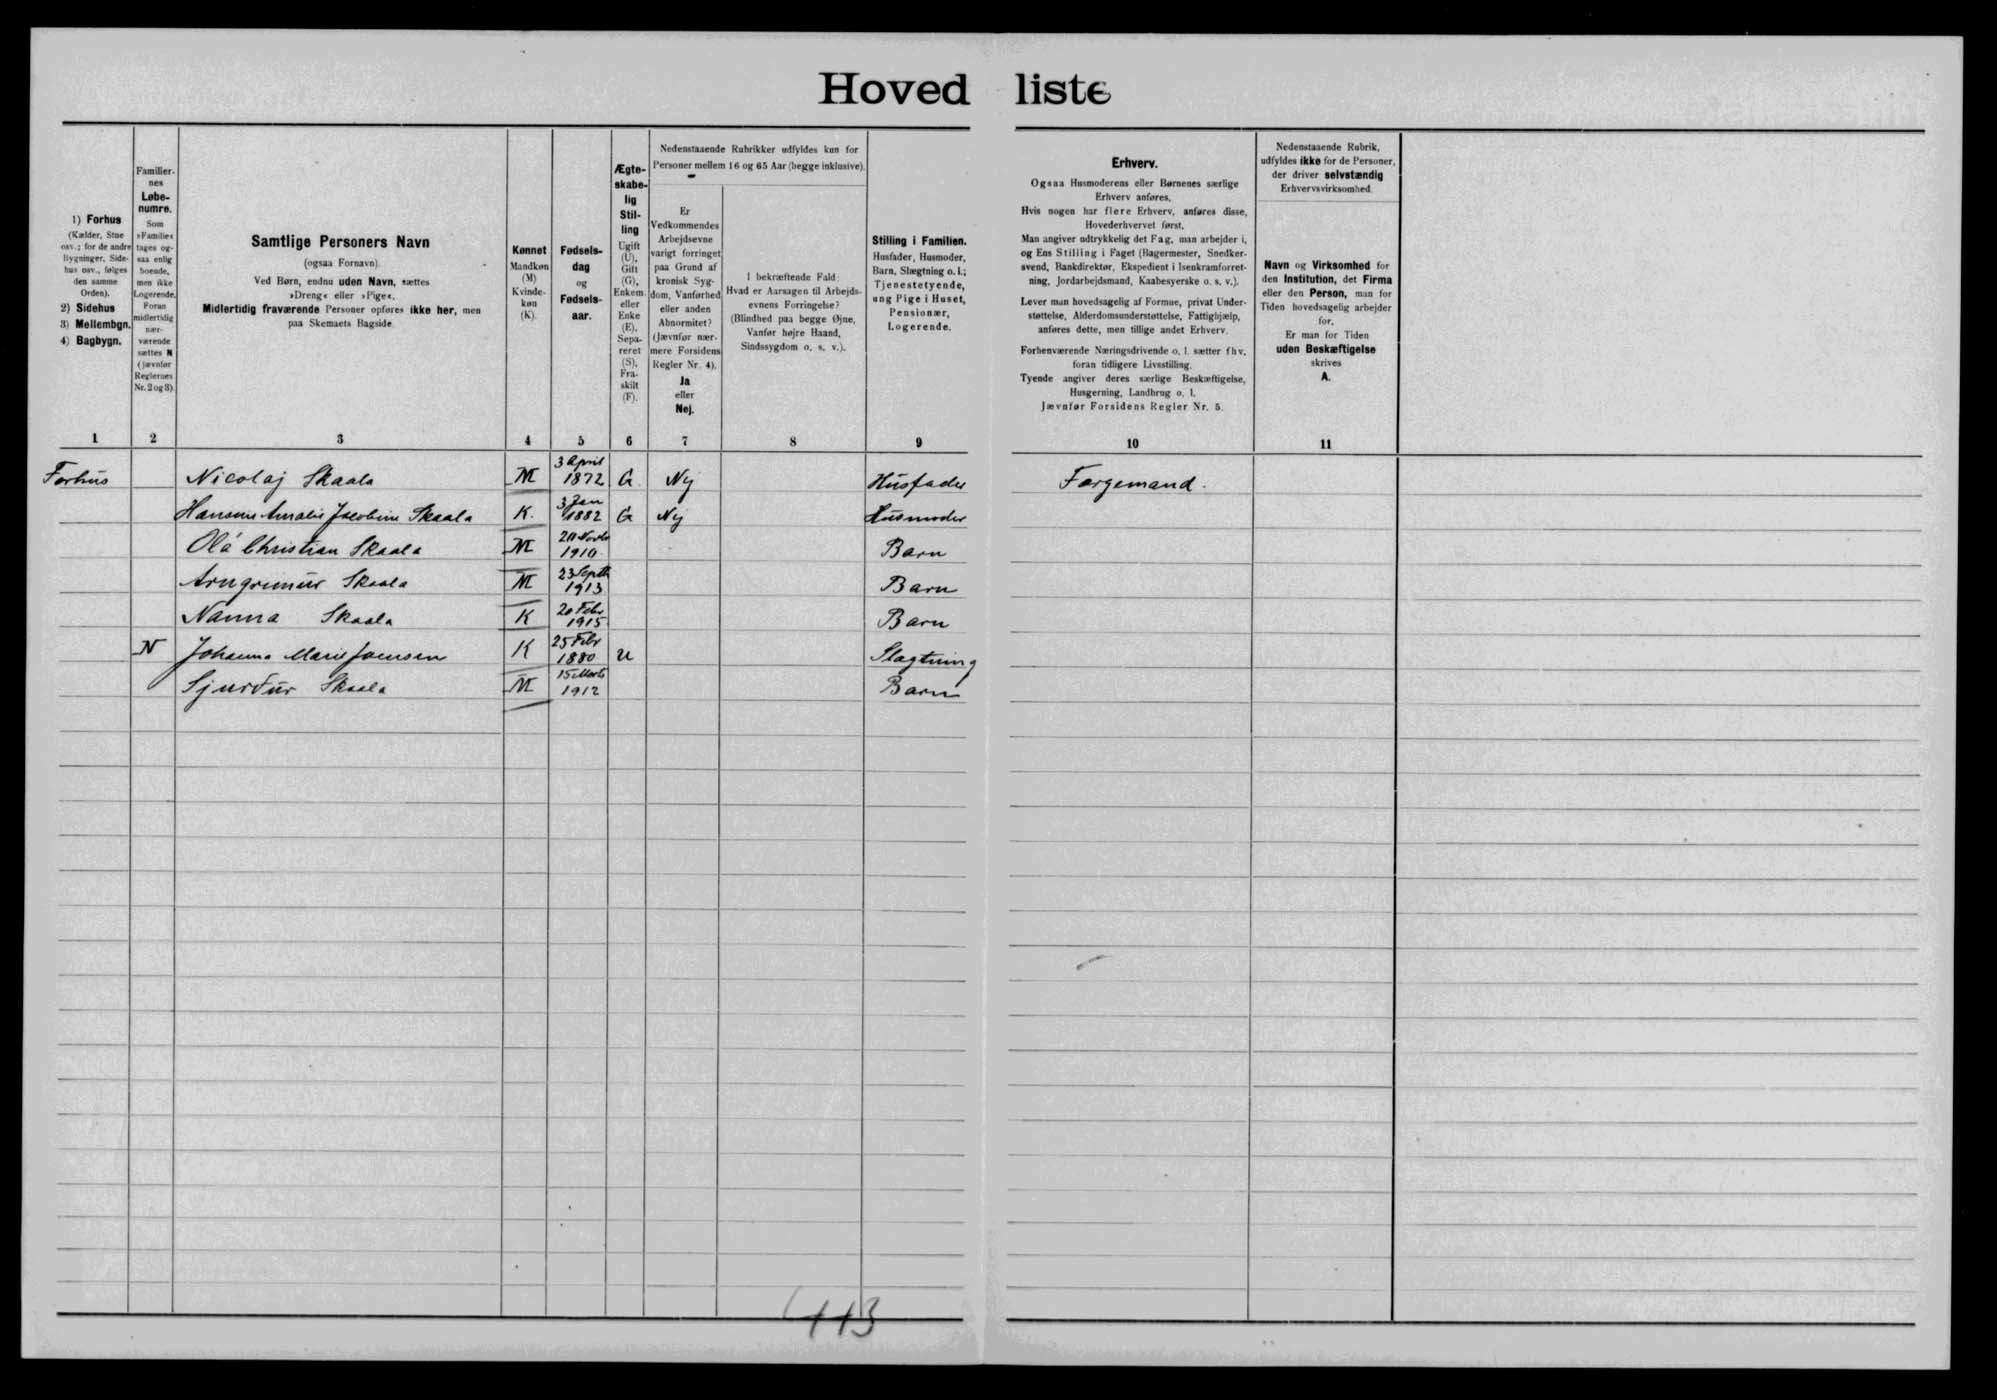 Hovedliste
1) Forhus
(Kælder, Stue
osv.; for de andre
Bygninger, Side-
hus osv., følges
den samme
Orden).
2) Sidehus
3) Mellembgn.
4) Bagbygn.
Familier-
nes
Løbe-
numre.
Som
»Familie«
tages og-
saa enlig
boende,
men ikke
Logerende.
Foran
midlertidig
nær-
værende
sættes N
(jævnfør
Reglernes
Nr. 2 og 3).
Samtlige Personers Navn
(ogsaa Fornavn).
Ved Børn, endnu uden Navn, sættes
»Dreng« eller »Pige«.
Midlertidig fraværende Personer opføres ikke her, men
paa Skemaets Bagside.
Kønnet
Mandkøn
(M)
Kvinde-
køn
(K).
Fødsels-
dag
og
Fødsels-
aar.
Ægte-
skabe-
lig
Stil-
ling
Ugift
(U),
Gift
(G),
Enkem.
eller
Enke
(E),
Sepa-
reret
(S),
Fra-
skilt
(F).
Nedenstaaende Rubrikker udfyldes kun for
Personer mellem 16 og 65 Aar (begge inklusive).
Er
Vedkommendes
Arbejdsevne
varigt forringet
paa Grund af
kronisk Syg-
dom, Vanførhed
eller anden
Abnormitet?
(Jævnfør nær-
mere Forsidens
Regler Nr. 4).
Ja
eller
Nej.
I bekræftende Fald:
Hvad er Aarsagen til Arbejds-
evnens Forringelse?
(Blindhed paa begge Øjne,
Vanfør højre Haand,
Sindssygdom o. s. v.).
Stilling i Familien.
Husfader, Husmoder,
Barn, Slægtning o. l.;
Tjenestetyende,
ung Pige i Huset,
Pensionær,
Logerende.
Erhverv.
Ogsaa Husmoderens eller Børnenes særlige
Erhverv anføres.
Hvis nogen har flere Erhverv, anføres disse,
Hovederhvervet først.
Man angiver udtrykkelig det Fag, man arbejder i,
og Ens Stilling i Faget (Bagermester, Snedker-
svend, Bankdirektør, Ekspedient i Isenkramforret-
ning, Jordarbejdsmand, Kaabesyerske o. s. v.).
Lever man hovedsagelig af Formue, privat Under-
støttelse, Alderdomsunderstøttelse, Fattighjælp,
anføres dette, men tillige andet Erhverv.
Forhenværende Næringsdrivende o. l. sætter fhv.
foran tidligere Livsstilling.
Tyende angiver deres særlige Beskæftigelse,
Husgerning, Landbrug o. l.
Jævnfør Forsidens Regler Nr. 5.
Nedenstaaende Rubrik,
udfyldes ikke for de Personer,
der driver selvstændig
Erhvervsvirksomhed.
Navn og Virksomhed for
den Institution, det Firma
eller den Person, man for
Tiden hovedsagelig arbejder
for.
Er man for Tiden
uden Beskæftigelse
skrives
A.
1 2 3 4 5 6 7 8 9 10 11
Forhus Nicolaj Skaala M 3 April 1872 G Nej Husfader Færgemand.
Hansine Amalie Jacobine Skaala K. 3 Jan 1882 G Nej Husmoder
Olá Christian Skaala M 1910 Barn
Arngrimur Skaala M 23 Septb 1913 Barn
Nanna Skaala K 20 Febr 1915 Barn
N Johanna Marie Joensen K 25 Febr 1880 U Slægtning
Sjurdur Skaala M 15 Marts 1912 Barn
113